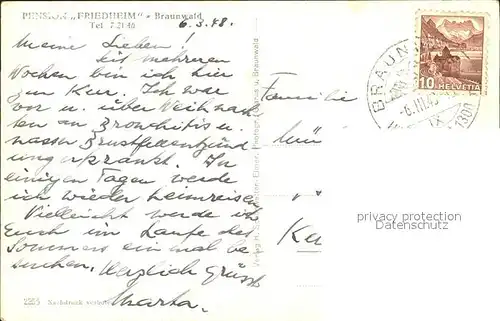 PENSION „FRIEDHEIM" - Braunwald
Tel 7 21 46
6.3.48.
Meine Lieben!
Seit mehreren
Wochen bin ich hier
zur Kur. Ich war
vor u. über Weihnach
ten an Bronchitis u.
nasser Brustfellentzünd
ung erkrankt. In
einigen Tagen werde
ich wieder heimreisen
Vielleicht werde ich
Euch im Laufe des
Sommers einmal be
suchen. Herzlich grüsst
Martha.
2255 Nachdruck verboten
Familie
BRAUN
-6.III.48
1300
10 HELVETIA
privacy protection
Datenschutz